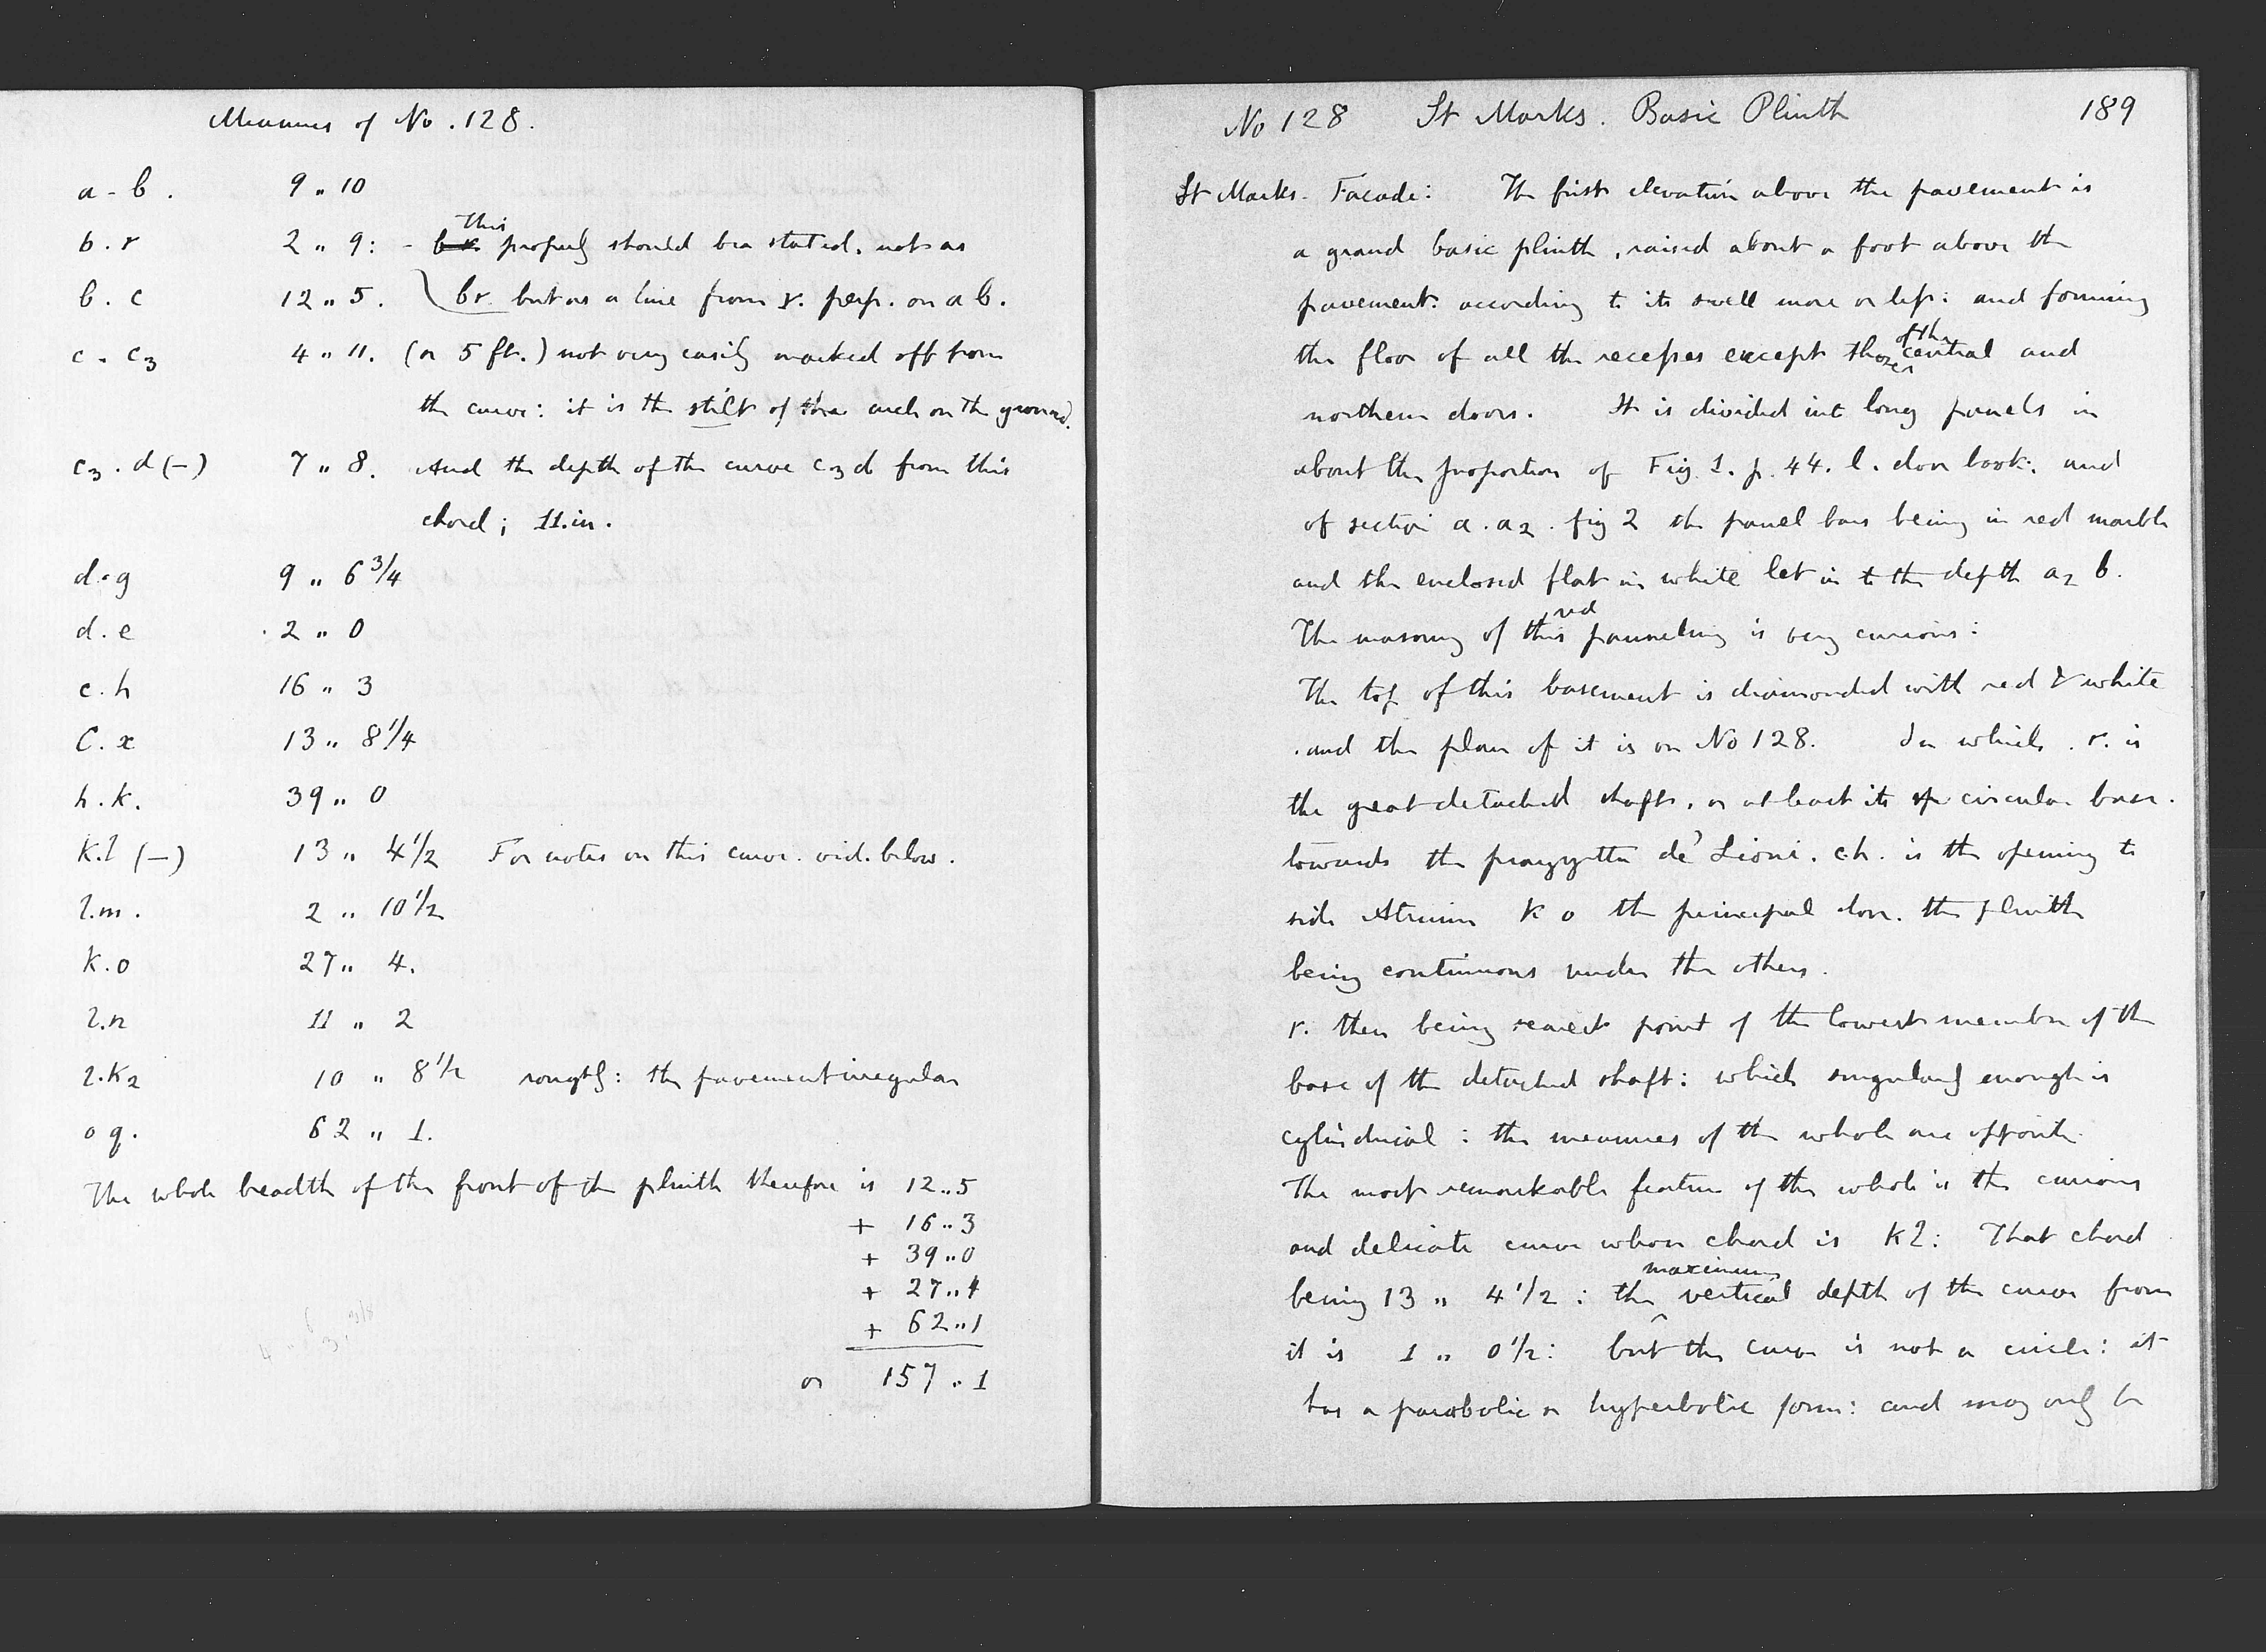 Measures of No. 128.
a - b. 9 " 10
this
b. r 2 " 9: - br properly should be a stated, not as
b. c 12 " 5. br. but as a line from r. perp. on a b.
c. c3 4 " 11. (or 5 ft.) not very easily marked off from
the curve: it is the stilt of the arch on the ground.
c3. d (-) 7 " 8. And the depth of the curve c3 d from this
chord; 11. in.
d. g 9 " 6 3/4
d. e 2 " 0
c. h 16 " 3
C. x 13 " 8 1/4
h. k. 39 " 0
k. l (-) 13 " 4 1/2 For notes on this curve. vid. below.
l. m. 2 " 10 1/2
k. o 27 " 4.
l. n 11 " 2
l. k2 10 " 8 1/2 roughly: the pavement irregular
o q. 62 " 1.
The whole breadth of the front of the plinth therefore is 12 " 5
+ 16 " 3
+ 39 " 0
+ 27 " 4
+ 62 " 1
or 157 " 1
No 128 St Marks. Basic Plinth 189
St Marks. Facade: The first elevation above the pavement is
a grand basic plinth, raised about a foot above the
pavement: according to its swell more or less: and forming
of the
the floor of all the recesses except those central and
northern doors. It is divided int long panels in
about the proportion of Fig. 1. p. 44. l. door book: and
of section a. a2. fig 2 the panel bars being in red marble
and the enclosed flat in white let in to the depth a2 b.
red
The masonry of this pannelling is very curious:
The top of this basement is diamonded with red & white
. and the plan of it is on No 128. In which. r. is
the great detached shaft, or at least its circular base.
towards the piazzetta de' Lioni. c.h. is the opening to
side Atrium k o the principal door. the plinth
being continuous under the others.
r. then being nearest point of the lowest member of the
base of the detached shaft: which singularly enough is
cylindrical: the measures of the whole are opposite.
The most remarkable feature of the whole is the curious
and delicate curve whose chord is k l: That chord
maximum
being 13 " 4 1/2: the vertical depth of the curve from
it is 1 " 0 1/2: but the curve is not a circle: it
has a parabolic or hyperbolic form: and may only be